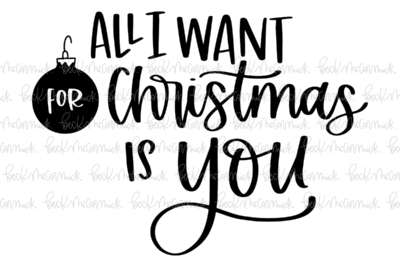 ALL I WANT
FOR Christmas
IS you